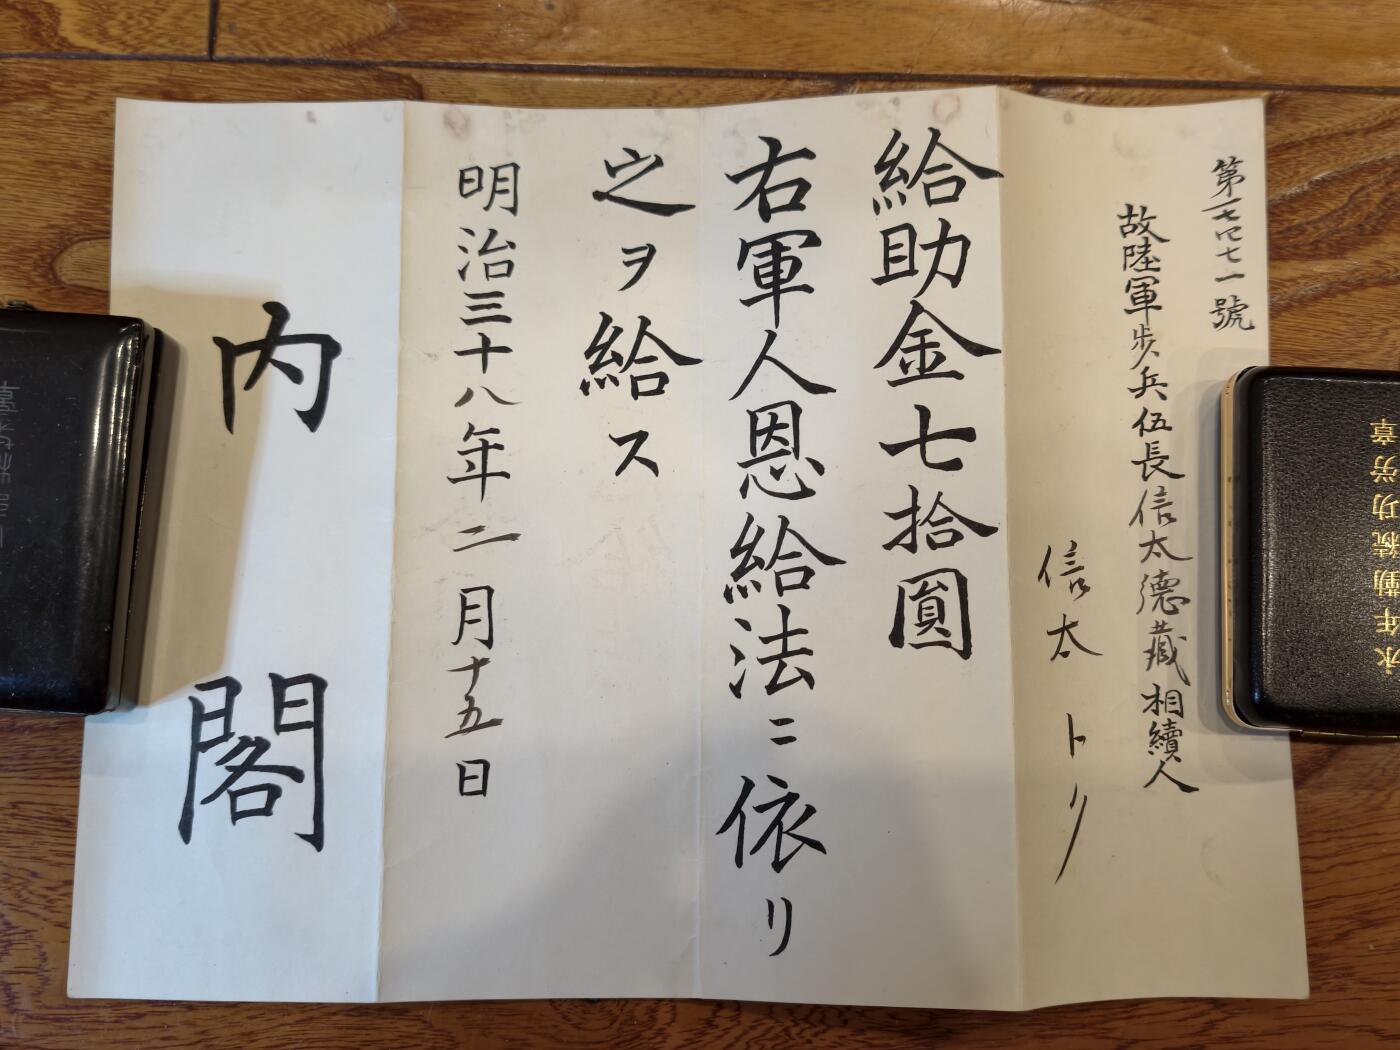 第一七〇七一號
故陸軍歩兵伍長信太德藏相續人
信太トリ
給助金七拾圓
右軍人恩給法ニ依リ
之ヲ給ス
明治三十八年二月十五日
内閣
永年勤続功労章